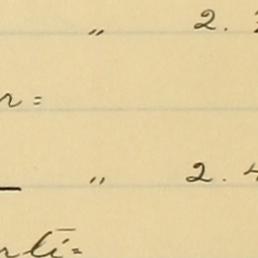 " 2.
r =
" 2. 4
rti=